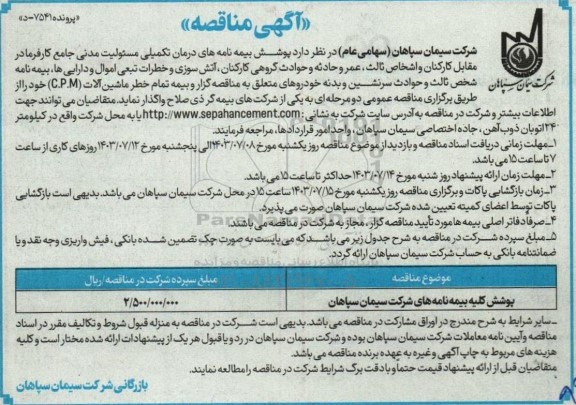 «آگهی مناقصه»
«پرونده ۷۵۴۱-د»
شرکت سیمان سپاهان
شرکت سیمان سپاهان (سهامی عام) در نظر دارد پوشش بیمه نامه های درمان تکمیلی مسئولیت مدنی جامع کارفرما در
مقابل کارکنان و اشخاص ثالث، عمر و حادثه و حوادث گروهی کارکنان، آتش سوزی و خطرات تبعی اموال و دارایی ها، بیمه نامه
شخص ثالث و حوادث سرنشین و بدنه خودروهای متعلق به مناقصه گزار و بیمه تمام خطر ماشین آلات (C.P.M) خود را از
طریق برگزاری مناقصه عمومی دو مرحله ای به یکی از شرکت های بیمه گر ذی صلاح واگذار نماید. متقاضیان می توانند جهت
اطلاعات بیشتر و شرکت در مناقصه به آدرس سایت شرکت به نشانی: http://www.sepahancement.com یا به محل شرکت واقع در کیلومتر
۲۴ اتوبان ذوب آهن، جاده اختصاصی سیمان سپاهان، واحد امور قراردادها، مراجعه فرمایند.
۱-مهلت زمانی دریافت اسناد مناقصه و بازدید از موضوع مناقصه روز یکشنبه مورخ ۱۴۰۳/۰۷/۰۸ الی پنجشنبه مورخ ۱۴۰۳/۰۷/۱۲ روزهای کاری از ساعت
۷ تا ساعت ۱۵ می باشد.
۲-مهلت زمان ارائه پیشنهاد روز شنبه مورخ ۱۴۰۳/۰۷/۱۴ حداکثر تا ساعت ۱۵ می باشد.
۳-زمان بازگشایی پاکات و برگزاری مناقصه روز یکشنبه مورخ ۱۴۰۳/۰۷/۱۵ ساعت ۱۵ در محل شرکت سیمان سپاهان می باشد. بدیهی است بازگشایی
پاکات توسط اعضای کمیته تعیین شده شرکت سیمان سپاهان صورت می پذیرد.
۴-صرفا دفاتر اصلی بیمه ها مورد تأیید مناقصه گزار، مجاز به شرکت در مناقصه می باشند.
۵-مبلغ سپرده شرکت در مناقصه به شرح جدول زیر می باشد که می بایست به صورت چک تضمین شده بانکی، فیش واریزی وجه نقد و یا
ضمانتنامه بانکی به حساب شرکت سیمان سپاهان ارائه گردد.
موضوع مناقصه
مبلغ سپرده شرکت در مناقصه/ریال
پوشش کلیه بیمه نامه های شرکت سیمان سپاهان
۲/۵۰۰/۰۰۰/۰۰۰
-سایر شرایط به شرح مندرج در اوراق مشارکت در مناقصه می باشد. بدیهی است شرکت در مناقصه به منزله قبول شروط و تکالیف مقرر در اسناد
مناقصه و آیین نامه معاملات شرکت سیمان سپاهان بوده و شرکت سیمان سپاهان در رد و یا قبول هر یک از پیشنهادات ارائه شده مختار است و کلیه
هزینه های مربوط به چاپ آگهی و غیره به عهده برنده مناقصه می باشد.
متقاضیان قبل از ارائه پیشنهاد قیمت حتما و با دقت برگ شرایط شرکت در مناقصه را مطالعه نمایند.
بازرگانی شرکت سیمان سپاهان